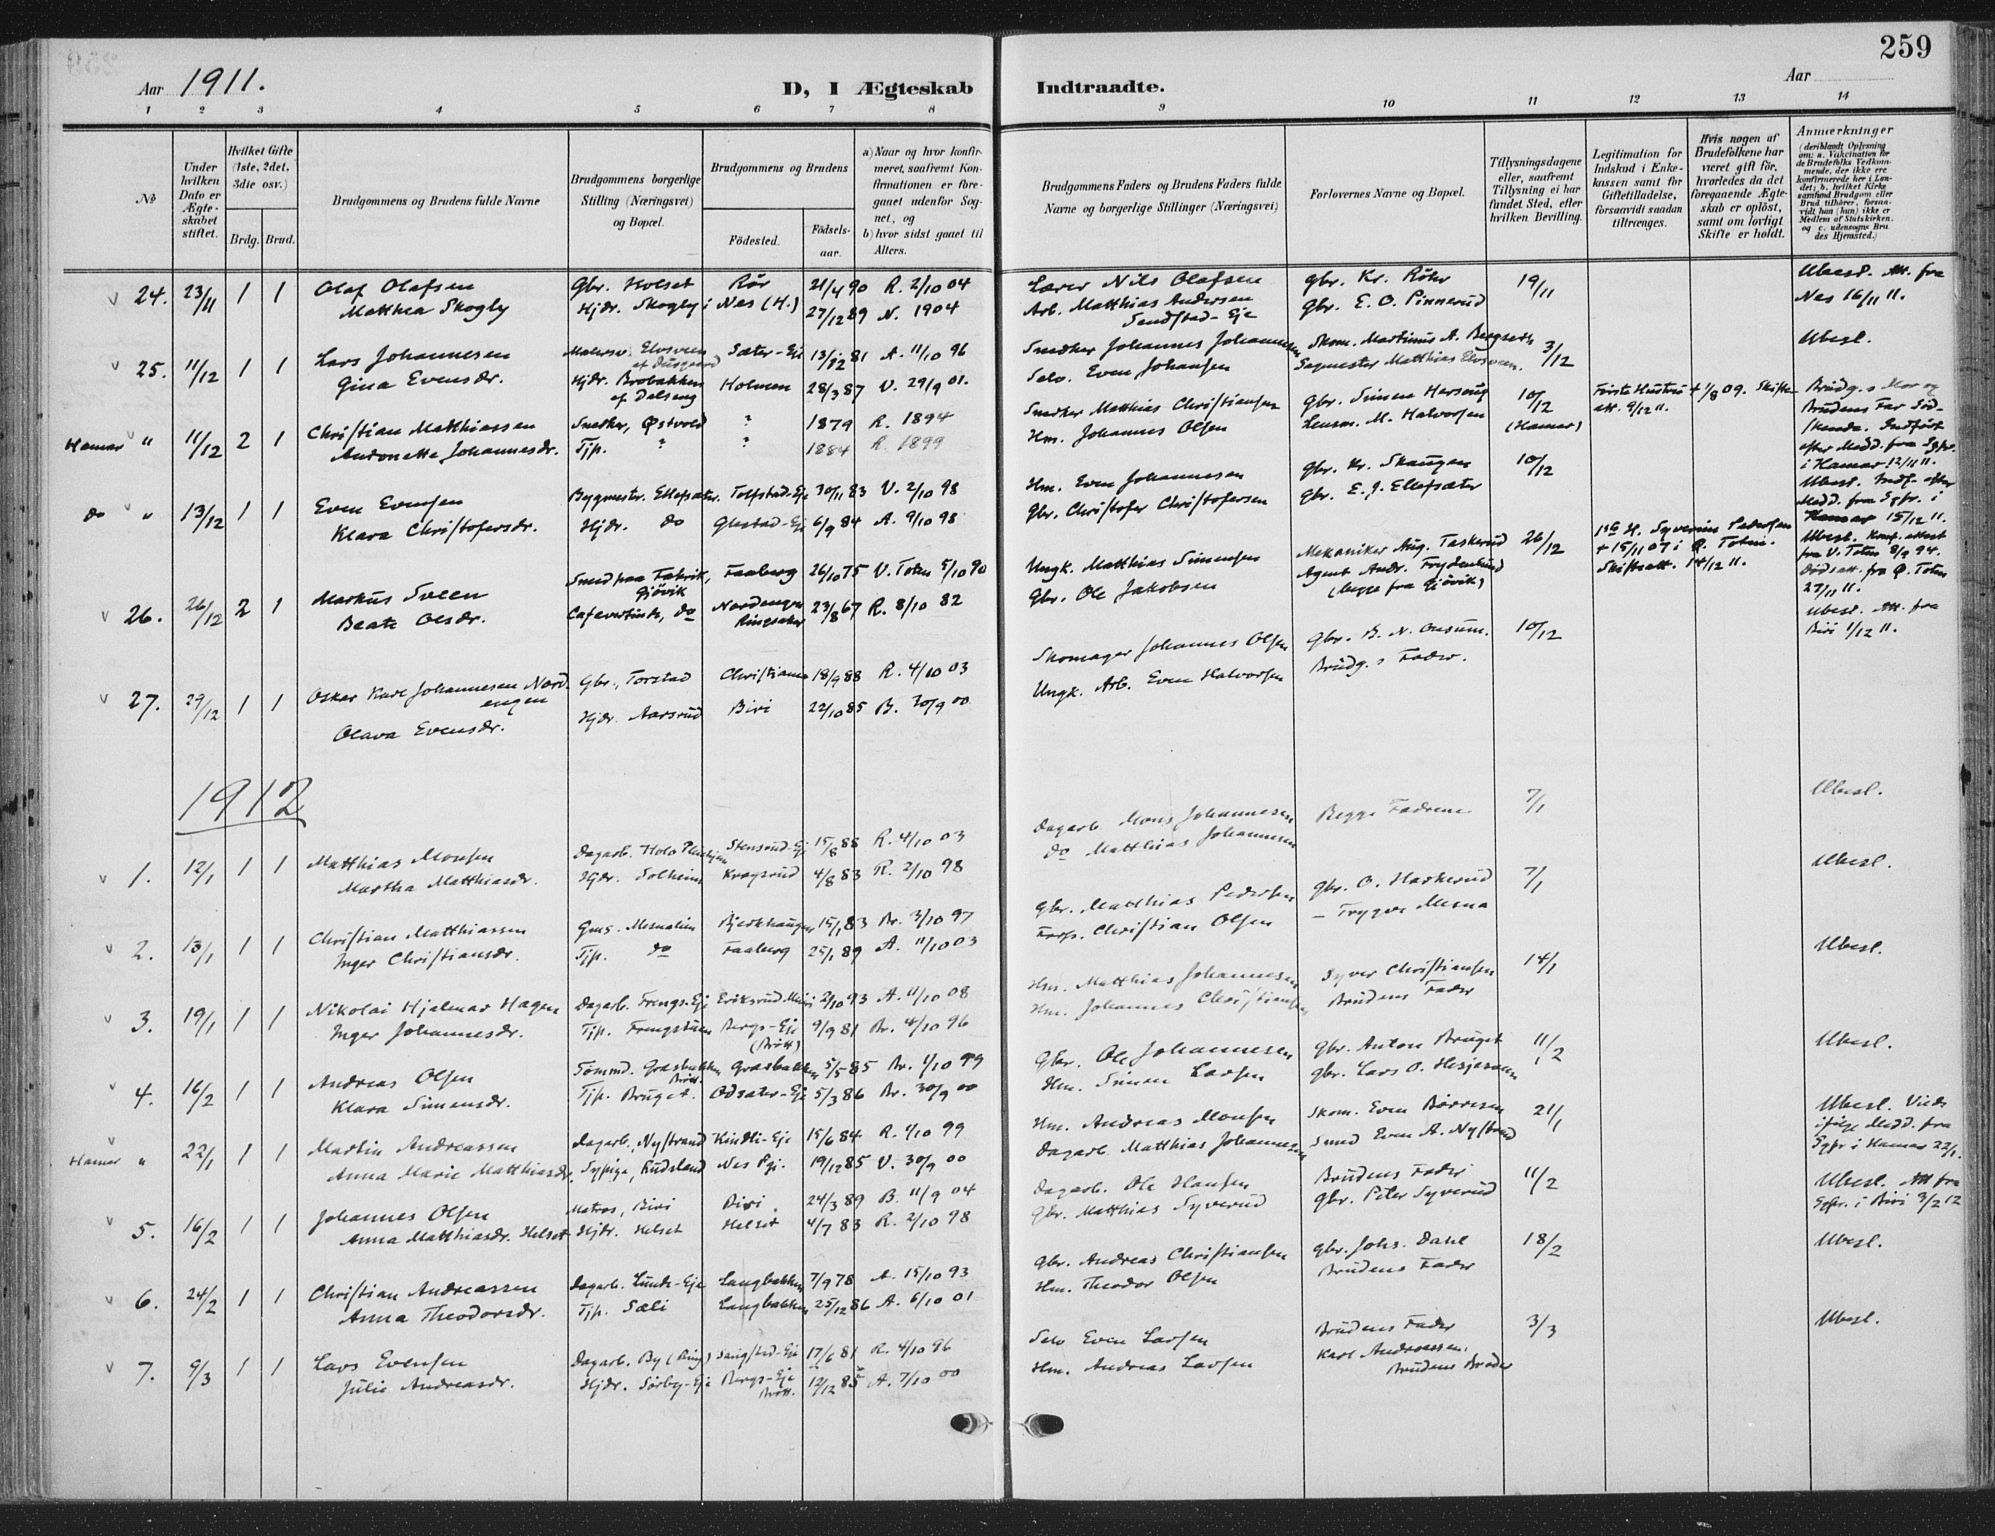 259
Aar 1911. D, I Ægteskab Indtraadte. Aar
1 2 3 4 5 6 7 8 9 10 11 12 13 14
No
Under hvilken Dato er Ægteskabet stiftet.
Hvilket Gifte (1ste, 2det, 3die osv.)
Brdg. Brud.
Brudgommens og Brudens fulde Navne
Brudgommens borgerlige Stilling (Næringsvei) og Bopæl.
Brudgommens og Brudens
Födested. Födsels-aar.
a) Naar og hvor konfirmeret, saafremt Konfirmationen er foregaaet udenfor Sognet, og
b) hvor sidst gaaet til Alters.
Brudgommens Faders og Brudens Faders fulde Navne og borgerlige Stillinger (Næringsvei)
Forlovernes Navne og Bopæl.
Tillysningsdagene eller, saafremt Tillysning ei har fundet Sted, efter hvilken Bevilling.
Legitimation for Indskud i Enkekassen samt for Giftetilladelse, forsaavidt saadan tiltrænges.
Hvis nogen af Brudefolkene har været gift før, hvorledes da det foregaaende Ægteskab er oplöst, samt om lovligt Skifte er holdt.
Anmærkninger
24. 23/11 1 1 Olaf Olafsen Gbr. Holset Rör 21/4 90 R. 2/10 04 Lærer Nils Olafsen Gbr. Kr. Röhr 19/11 Ubesl. Att. fra
Matthea Skogly Hjdr. Skogly i Nes (H.) 27/12 89 N. 1904 Arb. Matthias Andersen Sendstad-Eje Gbr. E. O. Pinnerud Nes 16/11 11.
25. 11/12 1 1 Lars Johannesen Elvsveen Sæter-Eje 81 A. 11/10 96 Snedker Johannes Johannesen Skom. Martinus A. Bergseth 3/12 Ubesl.
Gina Evensdr. Hjdr. Brobakken af Dalseng Holmen 28/3 87 V. 29/9 01. Selv. Even Johansen Sagmester Matthias Elvsveen.
Hamar " 11/12 2 1 Christian Matthiassen Snedker, Østvold ? 1879 R. 1894 Snedker Matthias Christiansen Gbr. Simen Hersoug 10/12 Første Hustru + 1/8 09. Skifte Brudg.s Mor og
Antonette Johannesdr. Tjp. ? ? 1884 R. 1899 Hm. Johannes Olsen Lensm. M. Halvorsen (Hamar) att. 9/12 11. Brudens Far Sød-
skende. Indført
efter Medd. fra Sgpr.
i Hamar 12/11 11.
do " 13/12 1 1 Even Evensen Bygmestr. Ellefsæter. Tolfstad-Eje 30/11 83 V. 2/10 98 Hm. Even Johannesen Gbr. Kr. Skaugen 10/12 Ubesl. Indf. efter
Klara Christofersdr. Hjdr. do Glestad-Eje 6/9 84 A. 9/10 98 Gbr. Christofer Christofersen Gbr. E. J. Ellefsæter Medd. fra Sgpr. i
Hamar 15/12 11.
26. 26/12 2 1 Markus Sveen Smed paa Fabrik, Gjövik Faaberg 26/10 75 V. Toten 5/10 90 Ungk. Matthias Simensen Mekaniker Aug. Taskerud 26/12 H. Syverine Pedersen Ubesl. Konf. attest
Beate Olsdr. Cafevertinde, do Nordengen Ringsaker 23/8 67 R. 8/10 82 Gbr. Ole Jakobsen Agent Andr. Frydenlund (begge fra Gjövik) + 15/11 07 i Ø. Toten. Skifteatt. 14/12 11. fra V. Toten 8/9 94.
Dødsatt. fra Ø. Toten
27/11 11.
27. 29/12 1 1 Oskar Karl Johannesen Nordengen Gbr., Torstad Christiania 18/9 88 R. 4/10 03 Skomager Johannes Olsen Gbr. B. N. Onsum. 10/12 Ubesl. Att. fra
Olava Evensdr. Hjdr. Aarsrud Biri 22/10 85 B. 30/9 00 Ungk. Arb. Even Halvorsen Brudg.s Fader. Biri 1/12 11.
1912
1. 12/1 1 1 Matthias Monsen Dagarb. Holo Stensrud-Eje 15/8 88 R. 4/10 03 Dagarb. Mons Johannesen Begge Fædrene 7/1 Ubesl.
Martha Matthiasdr. Hjdr. Solheim Kragsrud 4/8 83 R. 2/10 98 do Matthias Johannesen
2. 13/1 1 1 Christian Matthiassen Mesnalien Bjerkhaugen 15/1 83 Br. 3/10 97 Gbr. Matthias Pedersen Gbr. O. Haskerud 7/1 Ubesl.
Inger Christiansdr. Tjp. do Faaberg 25/1 89 A. 11/10 03 Forp. Christian Olsen — Trygve Mesna
3. 19/1 1 1 Nikolai Hjalmar Hagen Dagarb. Frengs-Eje Eriksrud 2/10 93 A. 11/10 08 Hm. Matthias Johannesen Syver Christiansen 14/1 Ubesl.
Inger Johannesdr. Tjp. Frengstuen Bergs-Eje (Brött) 9/9 81 Br. 4/10 96 Hm. Johannes Christiansen Brudens Fader
4. 16/2 1 1 Andreas Olsen Tømmd. Græsbakken Brött. Græsbakken 5/5 85 Br. 1/10 99 Gbr. Ole Johannesen Gbr. Anton Bruget 11/2 Ubesl.
Klara Simensdr. Tjp. Bruget. Odsæter-Eje 5/3 86 Br. 30/9 00 Hm. Simen Larsen Gbr. Lars O.
Hamar " 22/1 1 1 Martin Andreassen Dagarb., Nystrand Kindli-Eje 15/6 84 R. 1/10 99 Hm. Andreas Monsen Skom. Even Børresen 21/1 Ubesl. Viede
Anna Marie Matthiasdr. Sypige, Rudsland Nes Pgj. 19/12 85 V. 30/9 00 Dagarb. Matthias Johannesen Smed Even A. Nystrand ifølge Medd. fra
Sgpr i Hamar 22/1.
5. 16/2 1 1 Johannes Olsen Matros, Biri Biri. 24/3 89 B. 11/9 04 Dagarb. Ole Hansen Brudens Fader 11/2 Ubesl. Att fra
Anna Matthiasdr. Helset Hjdr. Helset Helset 4/7 83 R. 2/10 98 Gbr. Matthias Syverud Gbr. Peter Syverud Sgpr. i Biri 3/2 12
6. 24/2 1 1 Christian Andreassen Dagarb. Lunds-Eje Langbakken 7/9 78 A. 15/10 93 Gbr. Andreas Christiansen Gbr. Johs. Dahl 18/2 Ubesl.
Anna Theodorsdr. Tjp. Sæli Langbakken 25/12 86 A. 6/10 01 Hm. Theodor Olsen Brudens Fader
7. 9/3 1 1 Lars Evensen Dagarb. By (Ring) Sangstad-Eje 17/6 81 R. 4/10 96 Selv Even Larsen Brudens Fader 3/3 Ubesl.
Julie Andreasdr. Hjdr. Sørby-Eje Bergs-Eje Brött. 12/12 85 A. 7/10 00 Hm. Andreas Larsen Karl Andreassen, Brudens Broder